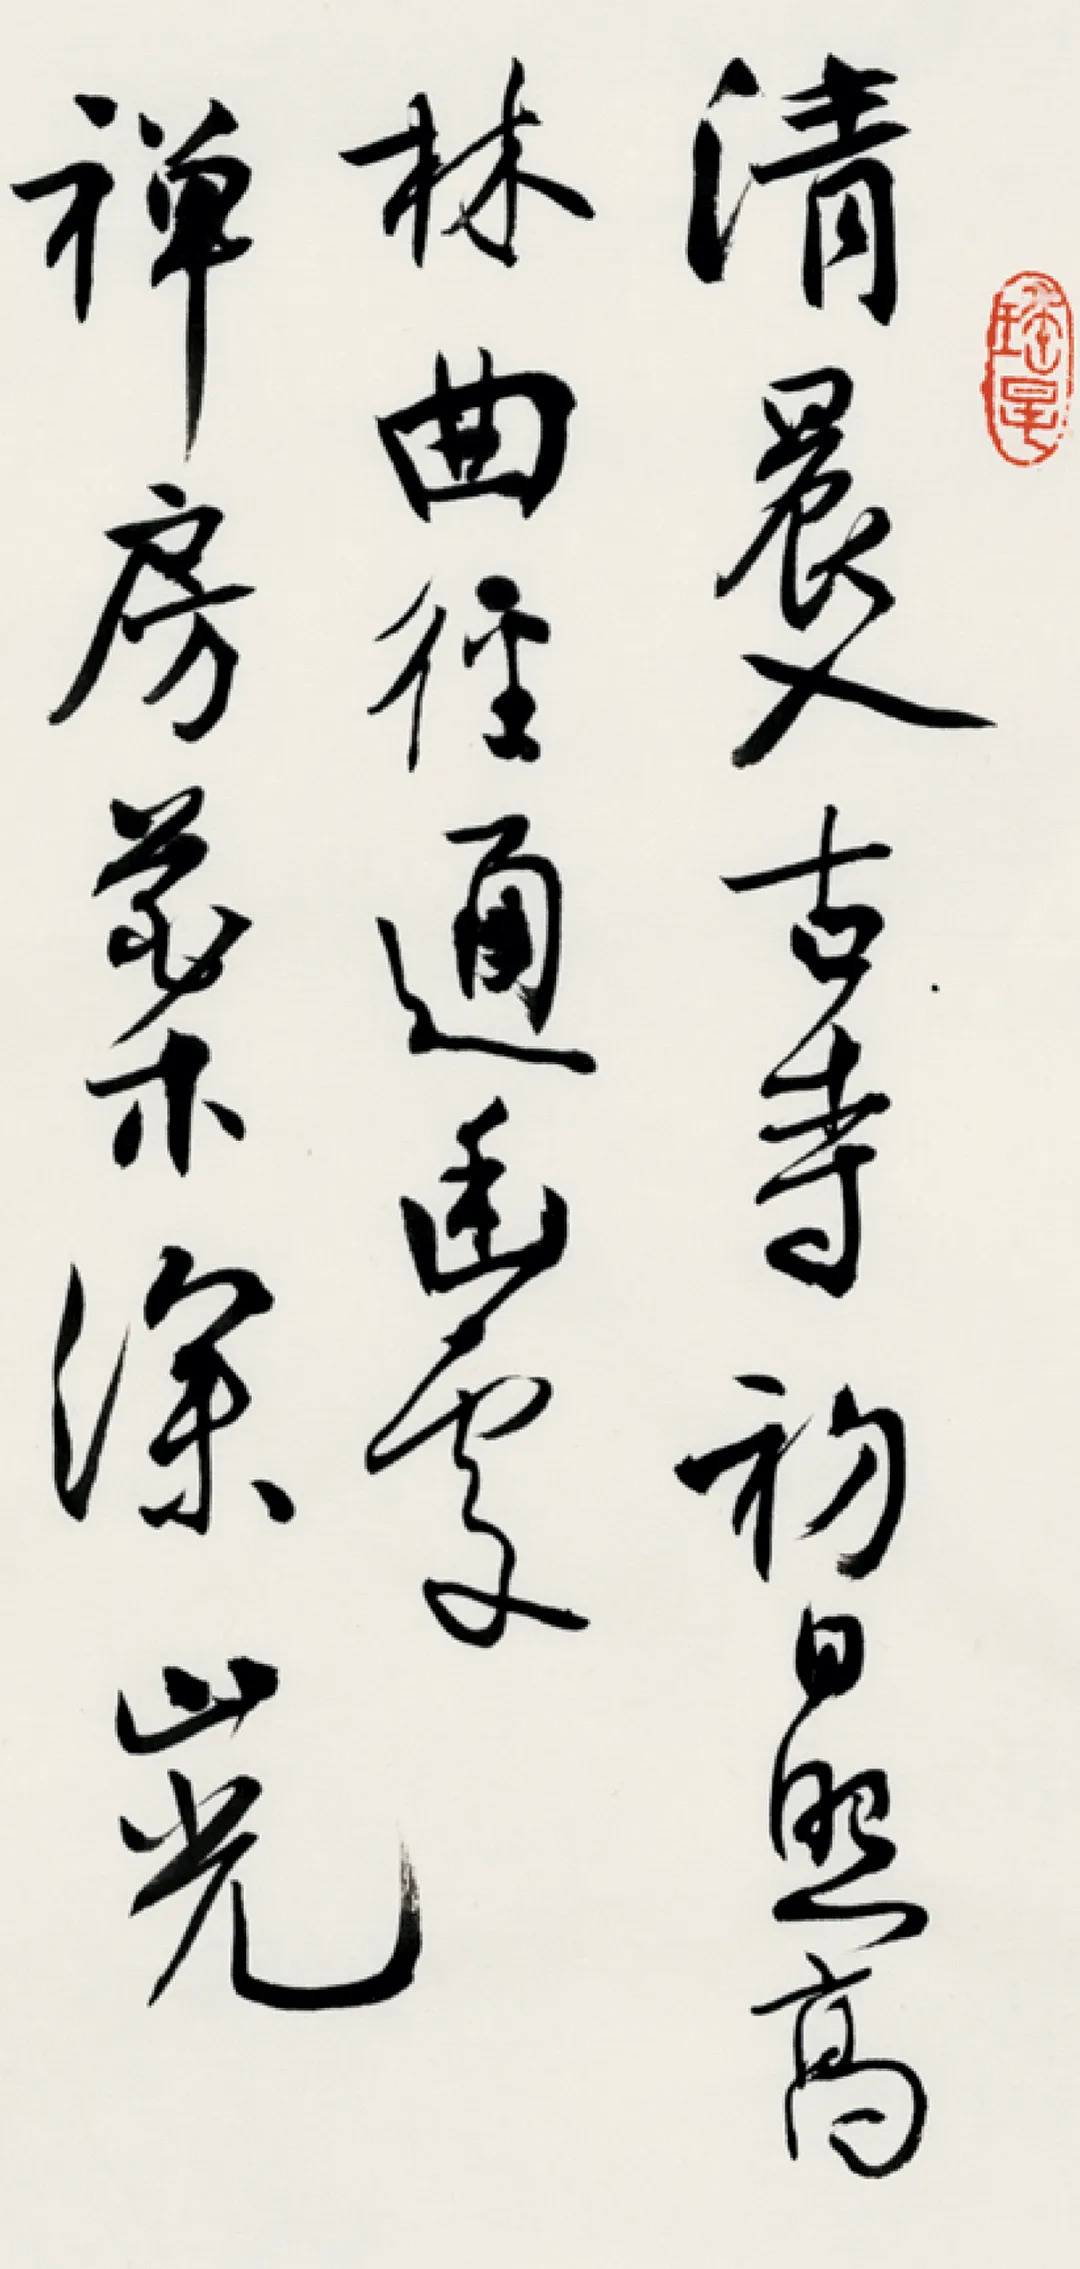 清晨入古寺初日照高
林曲徑通幽處
禅房花木深山光